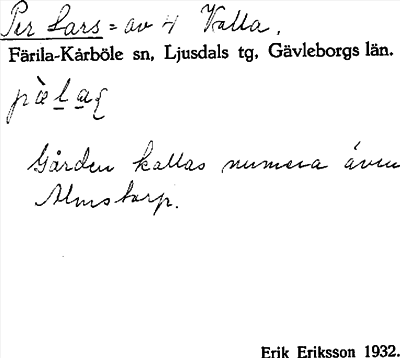 Per Lars = av 4 Valla.
Färila-Kårböle sn, Ljusdals tg, Gävleborgs län.
Gården kallas numera även
Almstorp.
Erik Eriksson 1932.